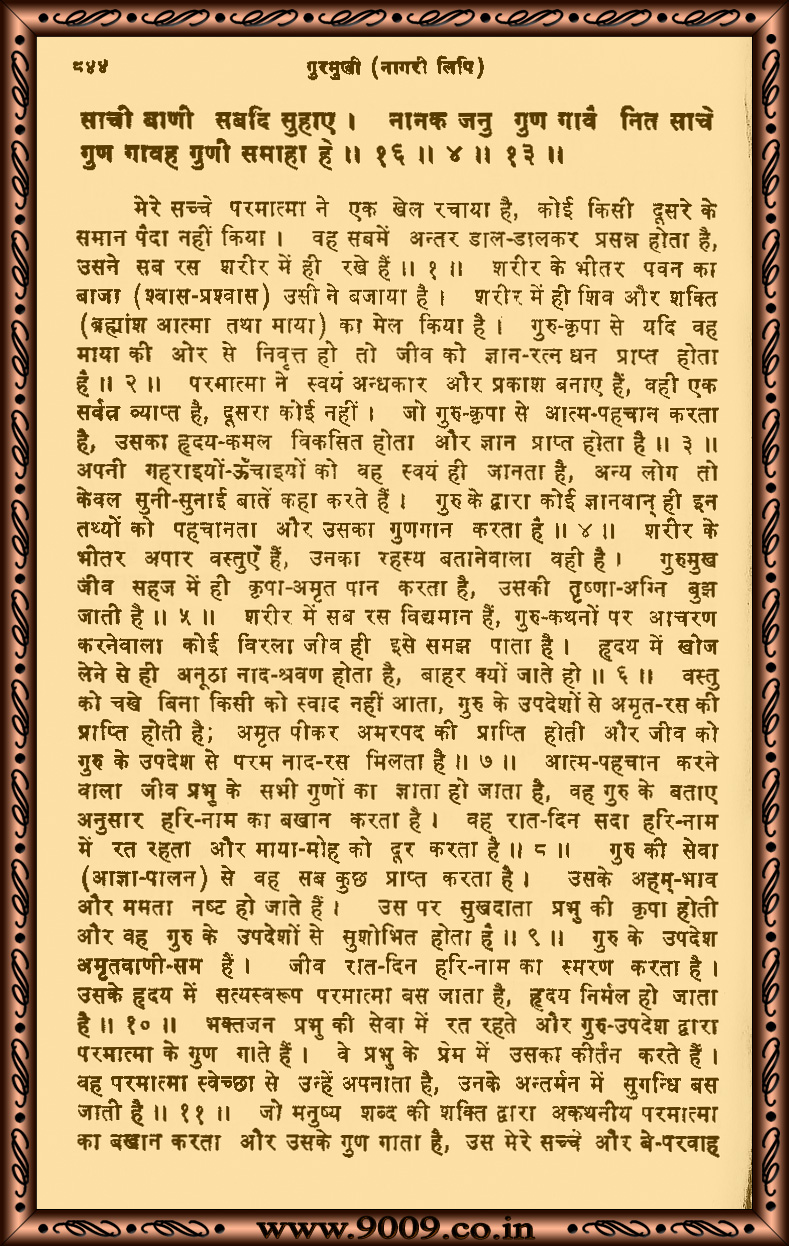 ८४४ गुरमुखी (नागरी लिपि)
साची बाणी सबदि सुहाए । नानक जनु गुण गावै नित साचे
गुण गावह गुणी समाहा हे ॥ १६ ॥ ४ ॥ १३ ॥
मेरे सच्चे परमात्मा ने एक खेल रचाया है, कोई किसी दूसरे के
समान पैदा नहीं किया । वह सबमें अन्तर डाल-डालकर प्रसन्न होता है,
उसने सब रस शरीर में ही रखे हैं ॥ १ ॥ शरीर के भीतर पवन का
बाजा (श्वास-प्रश्वास) उसी ने बजाया है । शरीर में ही शिव और शक्ति
(ब्रह्मांश आत्मा तथा माया) का मेल किया है । गुरु-कृपा से यदि वह
माया की ओर से निवृत्त हो तो जीव को ज्ञान-रत्न धन प्राप्त होता
है ॥ २ ॥ परमात्मा ने स्वयं अन्धकार और प्रकाश बनाए हैं, वही एक
सर्वत्र व्याप्त है, दूसरा कोई नहीं । जो गुरु-कृपा से आत्म-पहचान करता
है, उसका हृदय-कमल विकसित होता और ज्ञान प्राप्त होता है ॥ ३ ॥
अपनी गहराइयों-ऊँचाइयों को वह स्वयं ही जानता है, अन्य लोग तो
केवल सुनी-सुनाई बातें कहा करते हैं । गुरु के द्वारा कोई ज्ञानवान् ही इन
तथ्यों को पहचानता और उसका गुणगान करता है ॥ ४ ॥ शरीर के
भीतर अपार वस्तुएँ हैं, उनका रहस्य बतानेवाला वही है । गुरुमुख
जीव सहज में ही कृपा-अमृत पान करता है, उसकी तृष्णा-अग्नि बुझ
जाती है ॥ ५ ॥ शरीर में सब रस विद्यमान हैं, गुरु-कथनों पर आचरण
करनेवाला कोई विरला जीव ही इसे समझ पाता है । हृदय में खोज
लेने से ही अनूठा नाद-श्रवण होता है, बाहर क्यों जाते हो ॥ ६ ॥ वस्तु
को चखे बिना किसी को स्वाद नहीं आता, गुरु के उपदेशों से अमृत-रस की
प्राप्ति होती है; अमृत पीकर अमरपद की प्राप्ति होती और जीव को
गुरु के उपदेश से परम नाद-रस मिलता है ॥ ७ ॥ आत्म-पहचान करने
वाला जीव प्रभु के सभी गुणों का ज्ञाता हो जाता है, वह गुरु के बताए
अनुसार हरि-नाम का बखान करता है । वह रात-दिन सदा हरि-नाम
में रत रहता और माया-मोह को दूर करता है ॥ ८ ॥ गुरु की सेवा
(आज्ञा-पालन) से वह सब कुछ प्राप्त करता है । उसके अहम्-भाव
और ममता नष्ट हो जाते हैं । उस पर सुखदाता प्रभु की कृपा होती
और वह गुरु के उपदेशों से सुशोभित होता है ॥ ९ ॥ गुरु के उपदेश
अमृतवाणी-सम हैं । जीव रात-दिन हरि-नाम का स्मरण करता है ।
उसके हृदय में सत्यस्वरूप परमात्मा बस जाता है, हृदय निर्मल हो जाता
है ॥ १० ॥ भक्तजन प्रभु की सेवा में रत रहते और गुरु-उपदेश द्वारा
परमात्मा के गुण गाते हैं । वे प्रभु के प्रेम में उसका कीर्तन करते हैं ।
वह परमात्मा स्वेच्छा से उन्हें अपनाता है, उनके अन्तर्मन में सुगन्धि बस
जाती है ॥ ११ ॥ जो मनुष्य शब्द की शक्ति द्वारा अकथनीय परमात्मा
का बखान करता और उसके गुण गाता है, उस मेरे सच्चे और बे-परवाह
www.9009.co.in